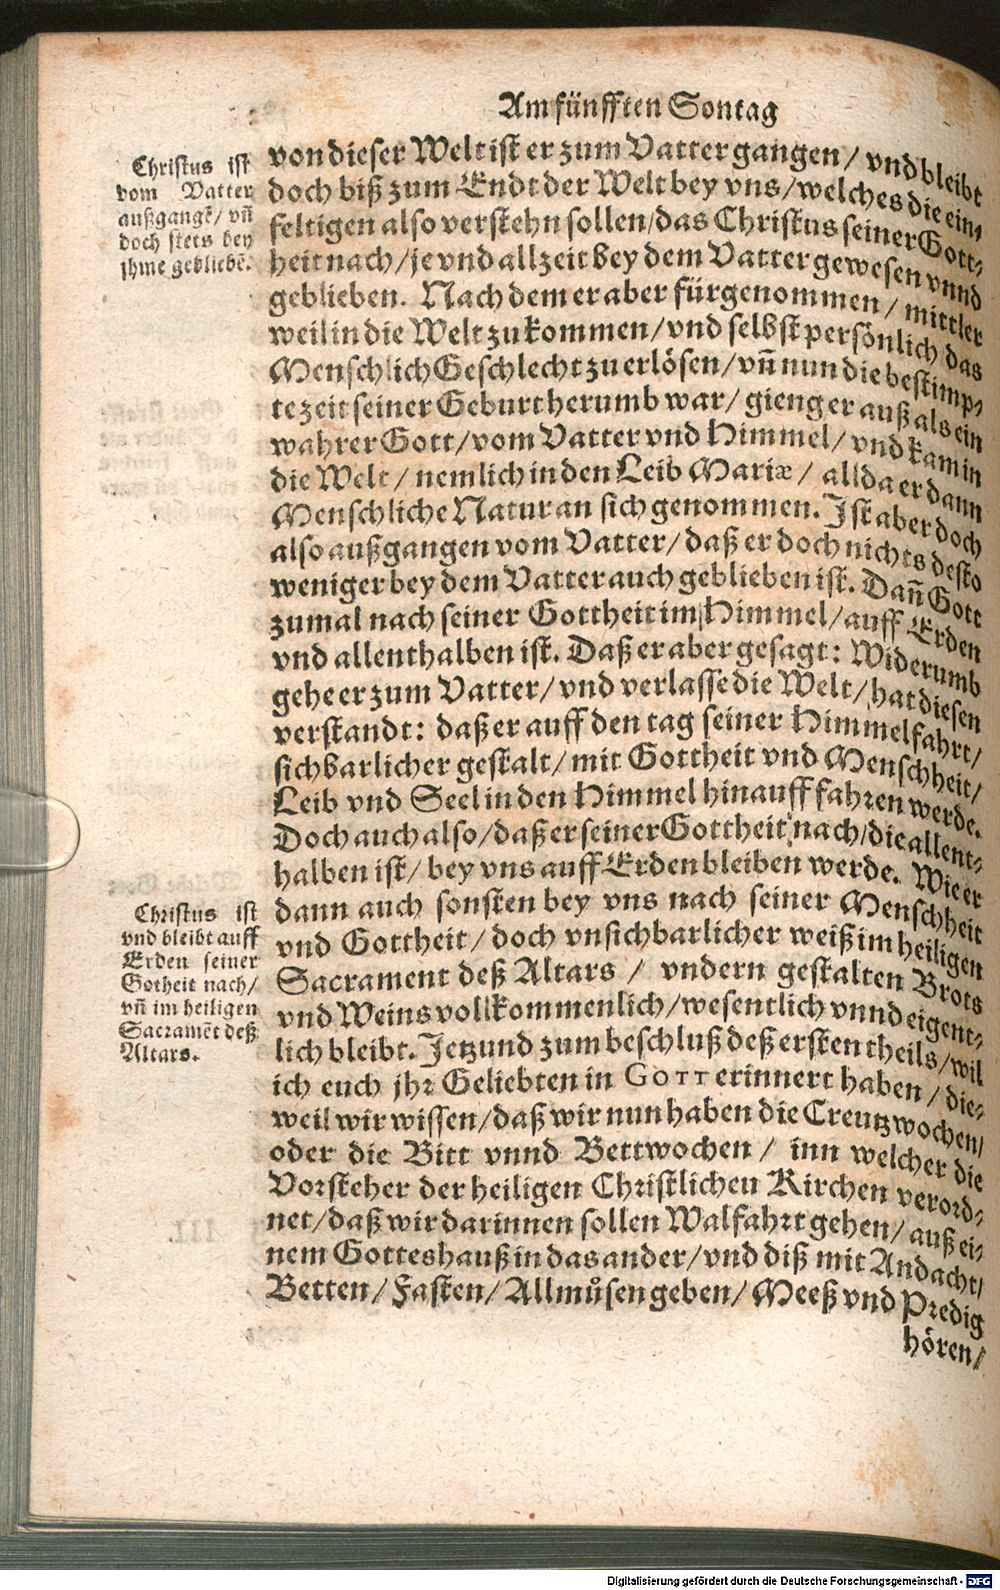 Am fünfften Sontag
von dieser Welt ist er zum Vatter gangen / vnd bleibt
doch biß zum Endt der Welt bey vns / welches die ein⸗
feltigen also verstehn sollen / das Christus seiner Gott⸗
heit nach / je vnd allzeit bey dem Vatter gewesen vnnd
geblieben. Nach dem er aber fürgenommen / mittler
weil in die Welt zu kommen / vnd selbst persönlich das
Menschlich Geschlecht zu erlösen / vñ nun die bestimp⸗
te zeit seiner Geburt herumb war / gieng er auß als ein
wahrer Gott / vom Vatter vnd Himmel / vnd kam in
die Welt / nemlich in den Leib Mariæ / allda er dann
Menschliche Natur an sich genommen. Ist aber doch
also außgangen vom Vatter / daß er doch nichts desto
weniger bey dem Vatter auch geblieben ist. Dañ Gott
zumal nach seiner Gottheit im Himmel / auff Erden
vnd allenthalben ist. Daß er aber gesagt: Widerumb
gehe er zum Vatter / vnd verlasse die Welt / hat diesen
verstandt: daß er auff den tag seiner Himmelfahrt /
sichbarlicher gestalt / mit Gottheit vnd Menschheit /
Leib vnd Seel in den Himmel hinauff fahren werde.
Doch auch also / daß er seiner Gottheit nach / die allent⸗
halben ist / bey vns auff Erden bleiben werde. Wie er
dann auch sonsten bey vns nach seiner Menschheit
vnd Gottheit / doch vnsichbarlicher weiß im heiligen
Sacrament deß Altars / vndern gestalten Brots
vnd Weins vollkommenlich / wesentlich vnnd eigent⸗
lich bleibt. Jetzund zum beschluß deß ersten theils / wil
ich euch jhr Geliebten in GOTT erinnert haben / die⸗
weil wir wissen / daß wir nun haben die Creutzwochen /
oder die Bitt vnnd Bettwochen / inn welcher die
Vorsteher der heiligen Christlichen Kirchen verord⸗
net / daß wir darinnen sollen Walfahrt gehen / auß ei⸗
nem Gotteshauß in das ander / vnd diß mit Andacht /
Betten / Fasten / Allmůsen geben / Meeß vnd Predig
hören /
Christus ist
vom Vatter
außgangẽ / vñ
doch stets bey
jhme gebliebẽ.
Christus ist
vnd bleibt auff
Erden seiner
Gotheit nach /
vñ im heiligen
Sacramẽt deß
Altars.
Digitalisierung gefördert durch die Deutsche Forschungsgemeinschaft - DFG